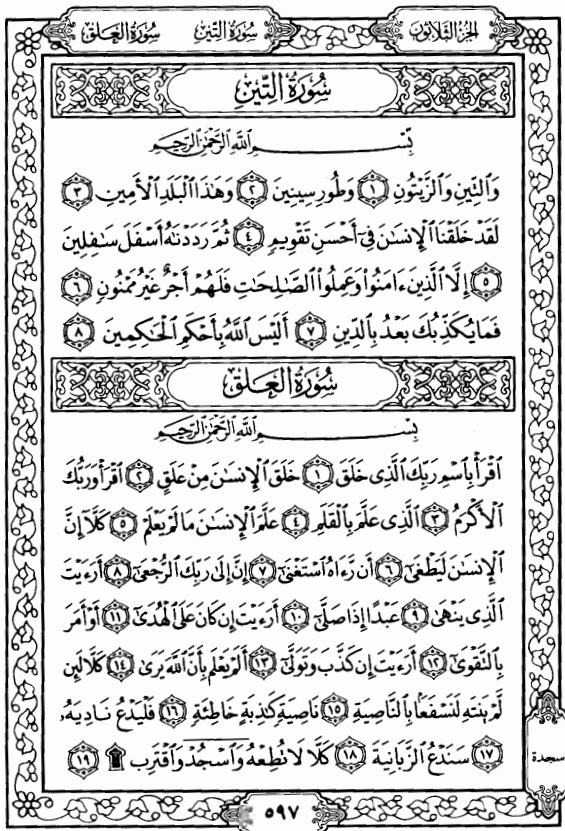 الجزء الثلاثون
سورة التين
سورة العلق
سُورَةُ التِّينِ
بِسْمِ اللَّهِ الرَّحْمَٰنِ الرَّحِيمِ
وَالتِّينِ وَالزَّيْتُونِ ١ وَطُورِ سِينِينَ ٢ وَهَٰذَا ٱلْبَلَدِ ٱلْأَمِينِ ٣
لَقَدْ خَلَقْنَا ٱلْإِنسَٰنَ فِىٓ أَحْسَنِ تَقْوِيمٍ ٤ ثُمَّ رَدَدْنَٰهُ أَسْفَلَ سَٰفِلِينَ
٥ إِلَّا ٱلَّذِينَ ءَامَنُوا۟ وَعَمِلُوا۟ ٱلصَّٰلِحَٰتِ فَلَهُمْ أَجْرٌ غَيْرُ مَمْنُونٍ ٦
فَمَا يُكَذِّبُكَ بَعْدُ بِٱلدِّينِ ٧ أَلَيْسَ ٱللَّهُ بِأَحْكَمِ ٱلْحَٰكِمِينَ ٨
سُورَةُ الْعَلَقِ
بِسْمِ اللَّهِ الرَّحْمَٰنِ الرَّحِيمِ
ٱقْرَأْ بِٱسْمِ رَبِّكَ ٱلَّذِى خَلَقَ ١ خَلَقَ ٱلْإِنسَٰنَ مِنْ عَلَقٍ ٢ ٱقْرَأْ وَرَبُّكَ
ٱلْأَكْرَمُ ٣ ٱلَّذِى عَلَّمَ بِٱلْقَلَمِ ٤ عَلَّمَ ٱلْإِنسَٰنَ مَا لَمْ يَعْلَمْ ٥ كَلَّآ إِنَّ
ٱلْإِنسَٰنَ لَيَطْغَىٰٓ ٦ أَن رَّءَاهُ ٱسْتَغْنَىٰٓ ٧ إِنَّ إِلَىٰ رَبِّكَ ٱلرُّجْعَىٰٓ ٨ أَرَءَيْتَ
ٱلَّذِى يَنْهَىٰ ٩ عَبْدًا إِذَا صَلَّىٰٓ ١٠ أَرَءَيْتَ إِن كَانَ عَلَى ٱلْهُدَىٰٓ ١١ أَوْ أَمَرَ
بِٱلتَّقْوَىٰٓ ١٢ أَرَءَيْتَ إِن كَذَّبَ وَتَوَلَّىٰٓ ١٣ أَلَمْ يَعْلَم بِأَنَّ ٱللَّهَ يَرَىٰ ١٤ كَلَّا لَئِن
لَّمْ يَنتَهِ لَنَسْفَعًۢا بِٱلنَّاصِيَةِ ١٥ نَاصِيَةٍ كَٰذِبَةٍ خَاطِئَةٍ ١٦ فَلْيَدْعُ نَادِيَهُۥ
١٧ سَنَدْعُ ٱلزَّبَانِيَةَ ١٨ كَلَّا لَا تُطِعْهُ وَٱسْجُدْ وَٱقْتَرِب ۩ ١٩
سجدة
٥٩٧